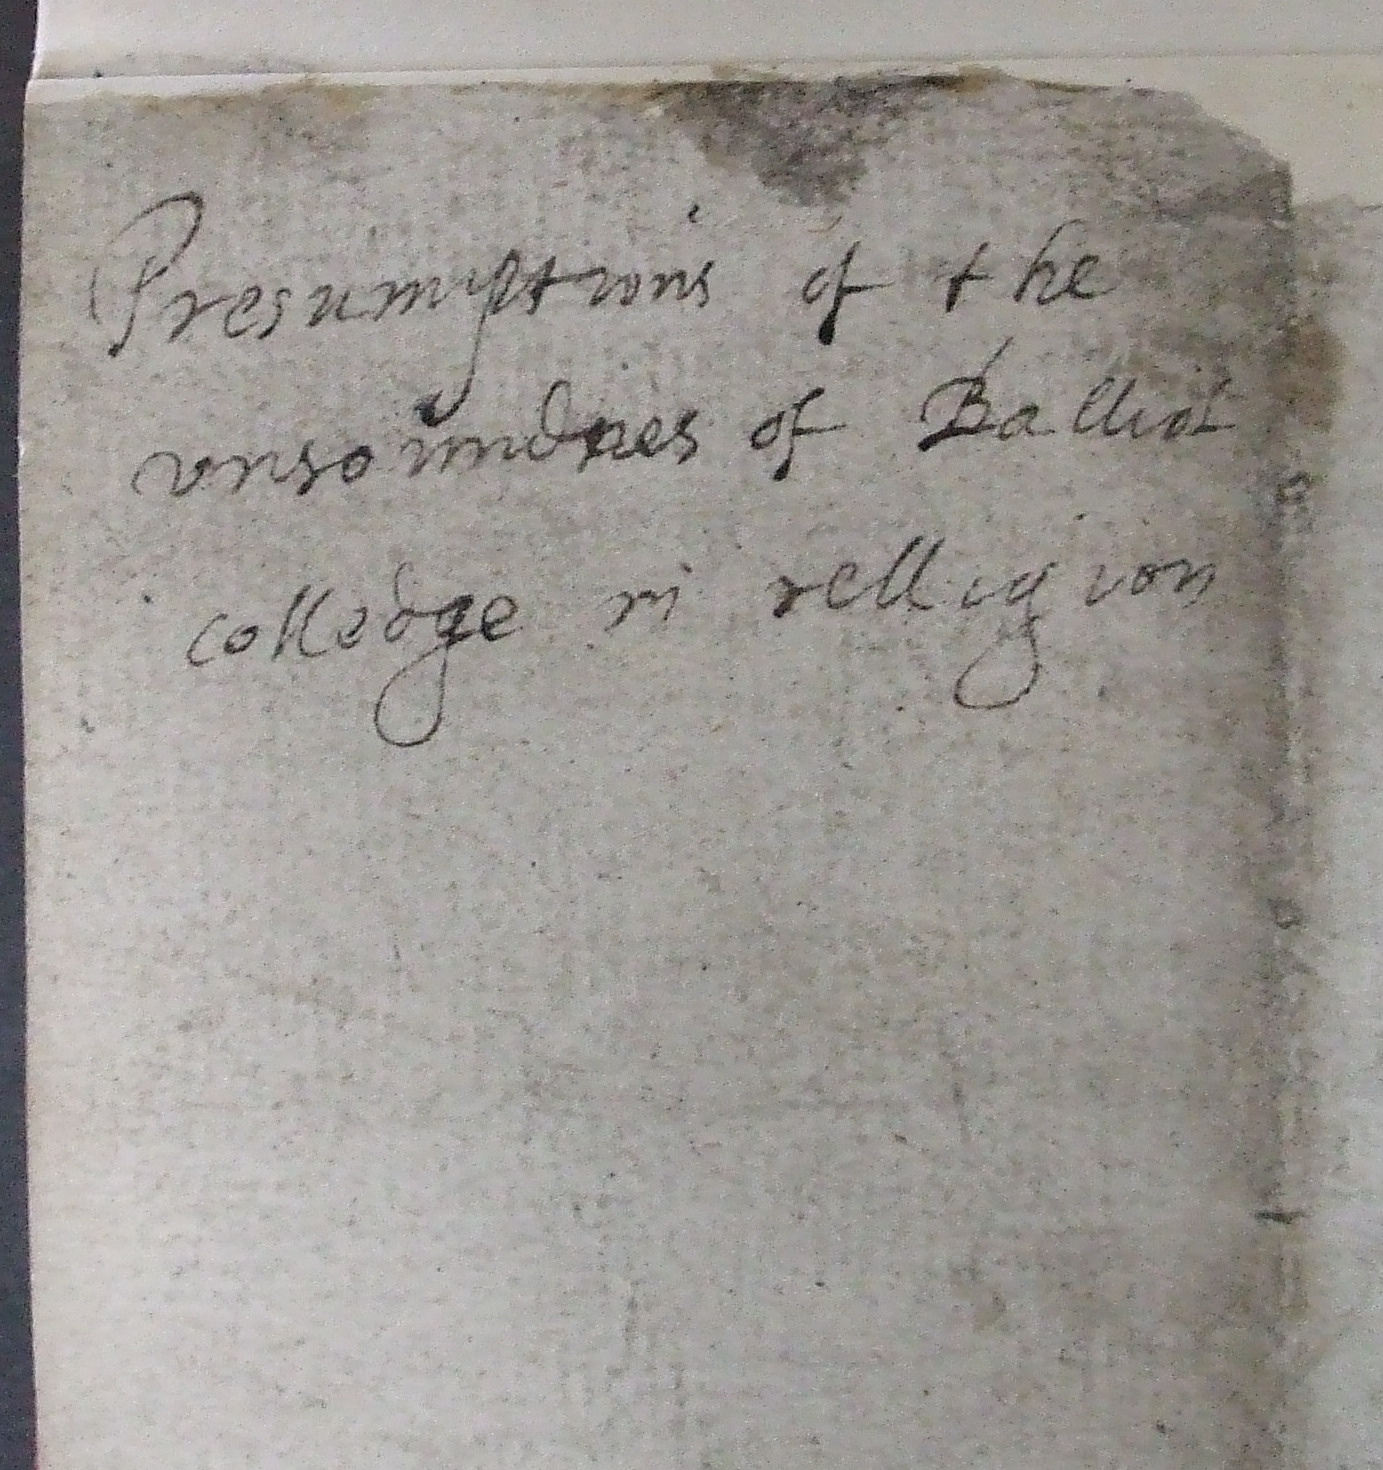 Presumptions of the
vnsoundnes of Balliol
colledge in relligion